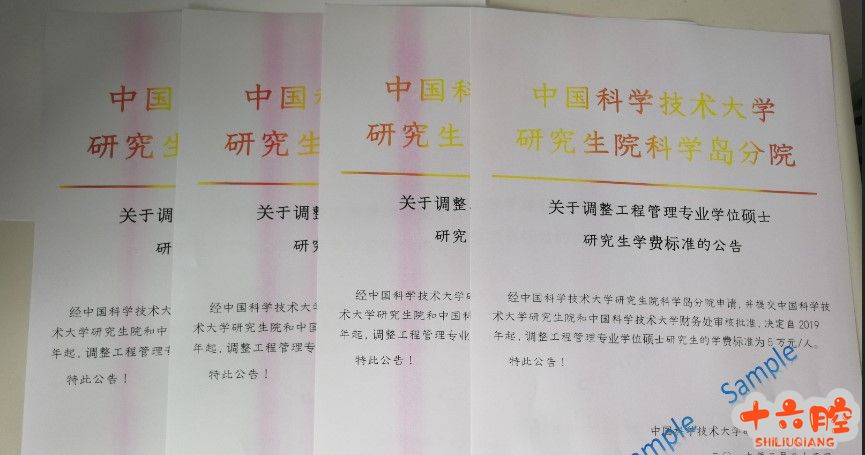 中国
研究生
关于调
研
经中国科学技术大
术大学研究生院和中
年起，调整工程管理专
特此公告！
中国科
研究生
关于调整
研究
经中国科学技术大学
术大学研究生院和中国
年起，调整工程管理专
特此公告！
中国科
研究生
关于调整工
研究
经中国科学技术大学研
术大学研究生院和中国科
年起，调整工程管理专业
特此公告！
中国科学技术大学
研究生院科学岛分院
关于调整工程管理专业学位硕士
研究生学费标准的公告
经中国科学技术大学研究生院科学岛分院申请，并提交中国科学技
术大学研究生院和中国科学技术大学财务处审核批准，决定自 2019
年起，调整工程管理专业学位硕士研究生的学费标准为 5 万元/人。
特此公告！
Sample
Sample
中国科学技术大学
十六腔
SHILIUQIANG